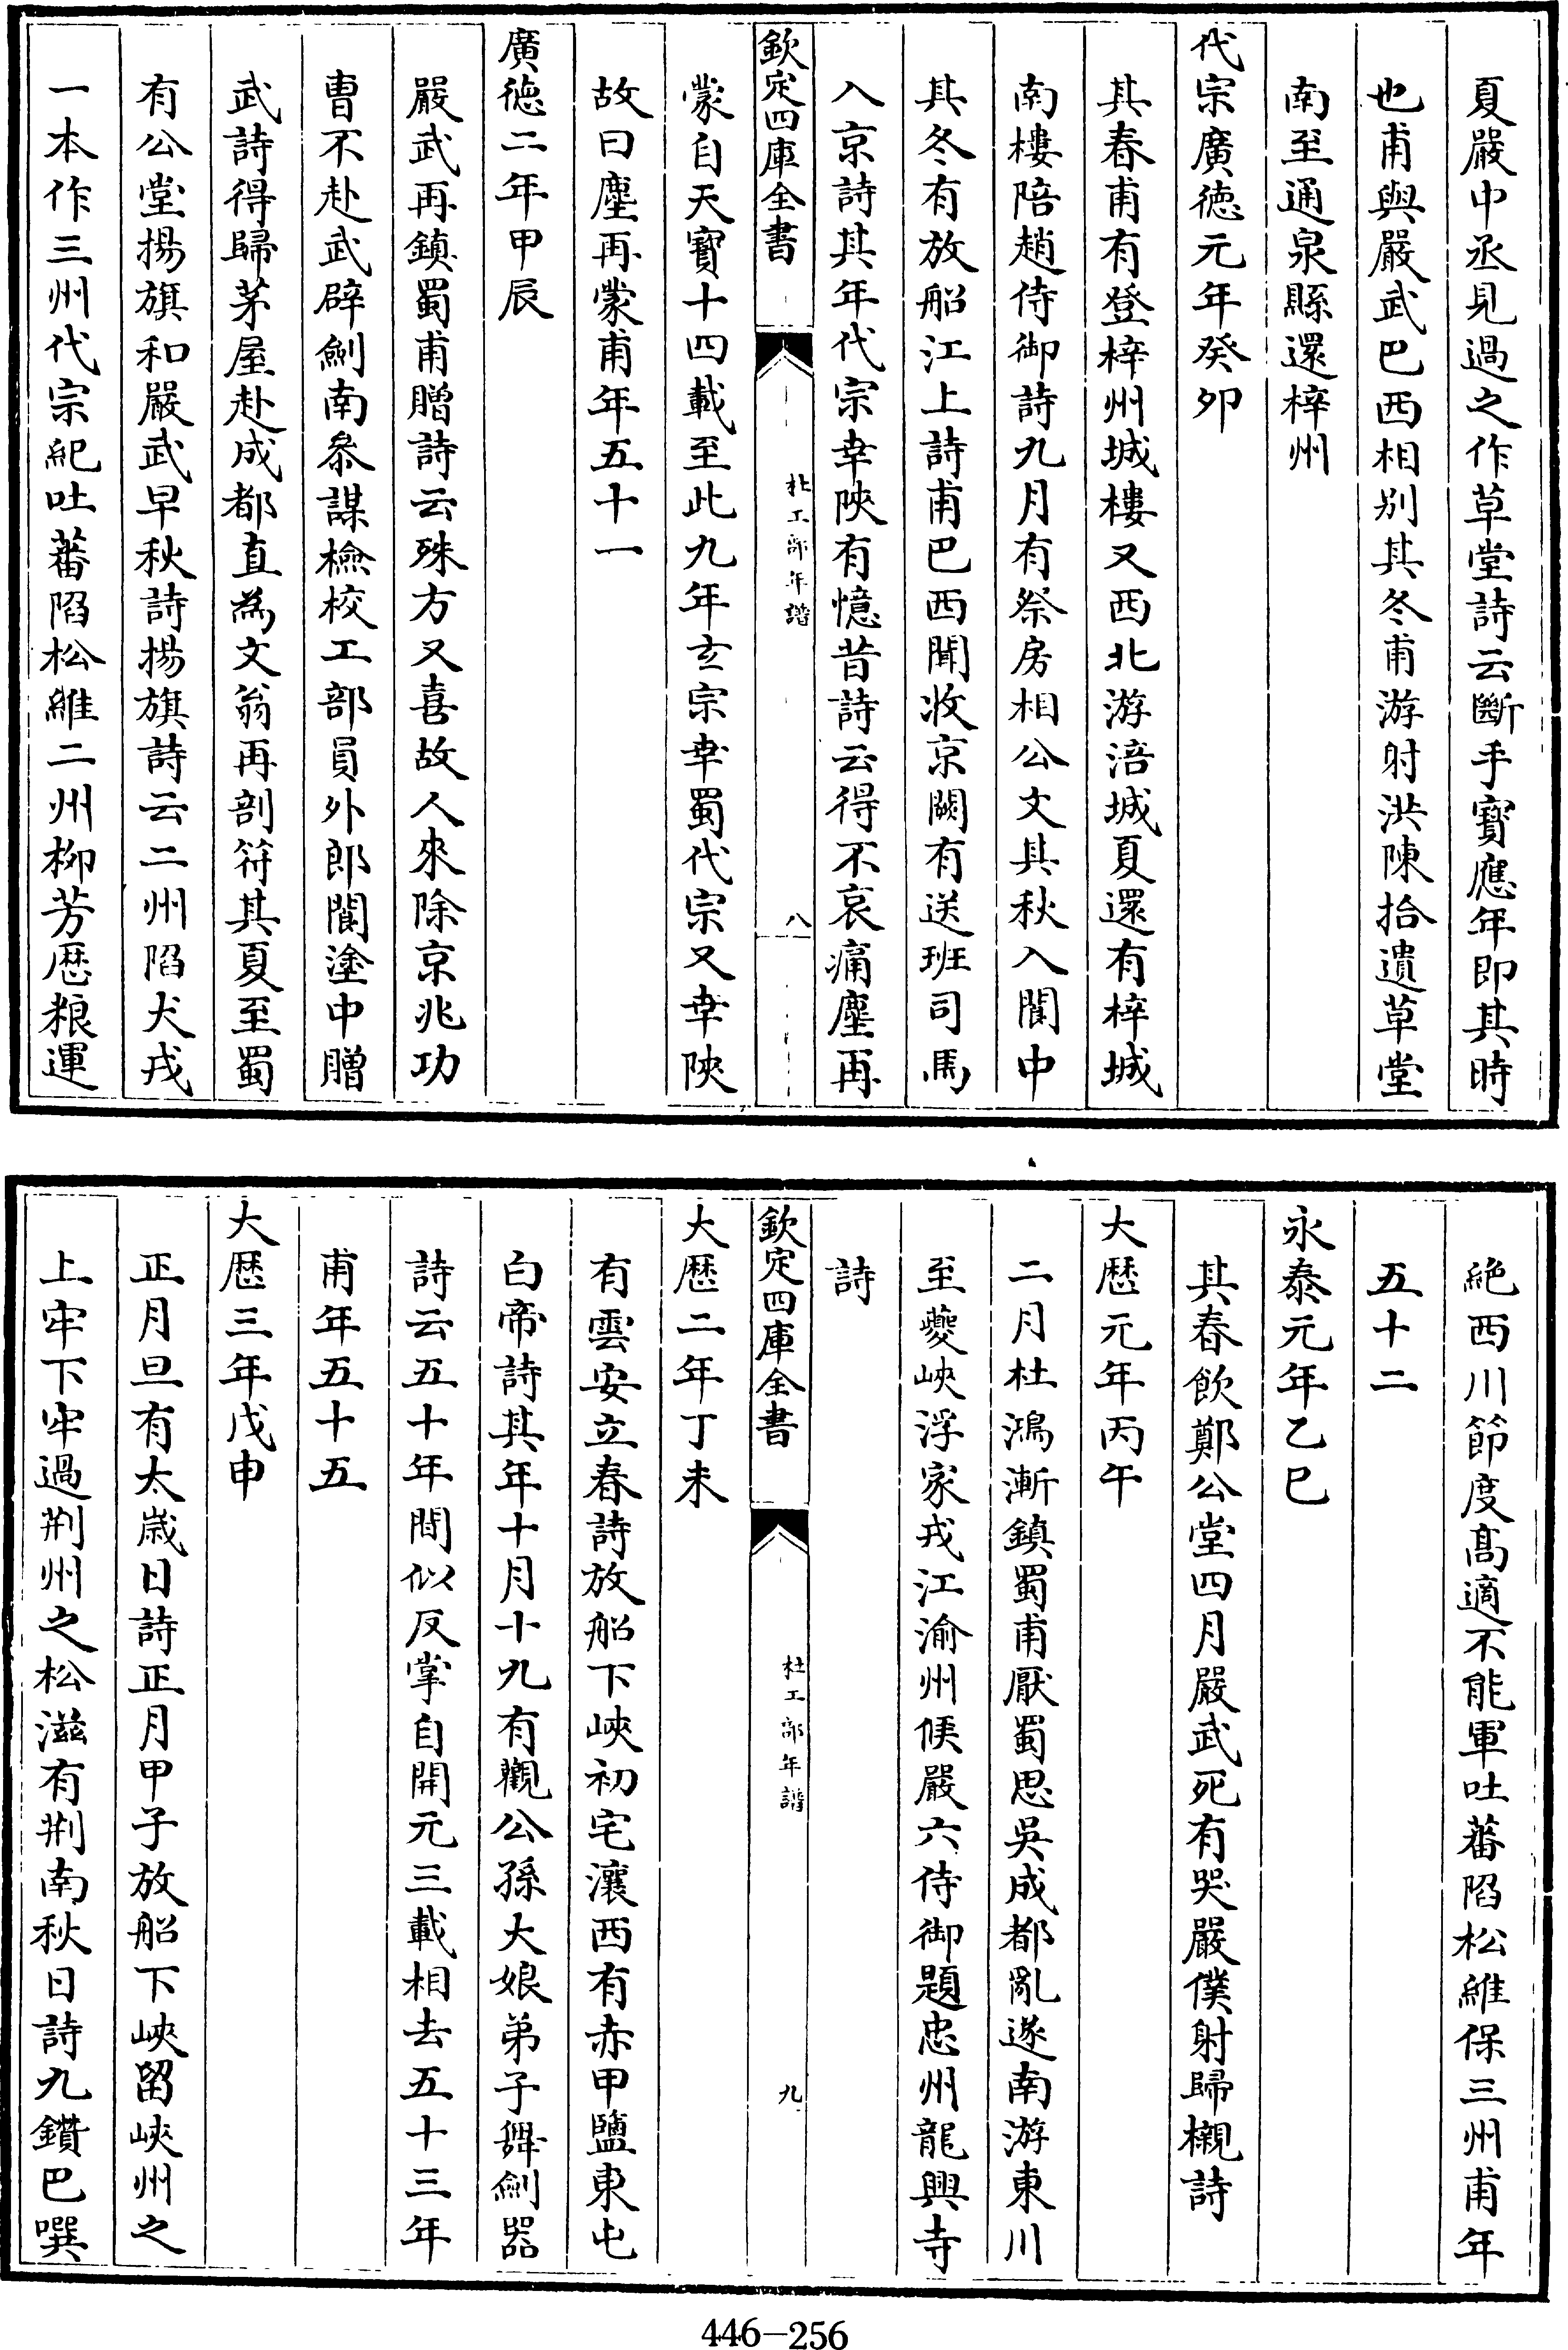 夏嚴中丞見過之作草堂詩云斷手寶應年即其時
也甫與嚴武巴西相別其冬甫游射洪陳拾遺草堂
南至通泉縣還梓州
代宗廣徳元年癸卯
其春甫有登梓州城樓又西北游涪城夏還有梓城
南樓陪趙侍御詩九月有祭房相公文其秋入閬中
其冬有放船江上詩甫巴西聞收京闕有送班司馬
入京詩其年代宗幸陜有憶昔詩云得不哀痛塵再
欽定四庫全書
杜工部年譜
八
蒙自天寳十四載至此九年玄宗幸蜀代宗又幸陜
故曰塵再蒙甫年五十一
廣徳二年甲辰
嚴武再鎮蜀甫贈詩云殊方又喜故人來除京兆功
曹不赴武辟劍南叅謀檢校工部員外郎閬塗中贈
武詩得歸茅屋赴成都直為文翁再剖符其夏至蜀
有公堂揚旗和嚴武早秋詩揚旗詩云二州陷犬戎
一本作三州代宗紀吐蕃陷松維二州柳芳厯粮運
絶西川節度髙適不能軍吐蕃陷松維保三州甫年
五十二
永泰元年乙巳
其春飲鄭公堂四月嚴武死有哭嚴僕射歸櫬詩
大厯元年丙午
二月杜鴻漸鎮蜀甫厭蜀思吳成都亂遂南游東川
至夔峽浮家戎江渝州俟嚴六侍御題忠州龍興寺
詩
欽定四庫全書
杜工部年譜
九
大厯二年丁未
有雲安立春詩放船下峽初宅瀼西有赤甲鹽東屯
白帝詩其年十月十九有觀公孫大娘弟子舞劍器
詩云五十年間似反掌自開元三載相去五十三年
甫年五十五
大厯三年戊申
正月旦有太歳日詩正月甲子放船下峽留峽州之
上牢下牢過荆州之松滋有荆南秋日詩九鑽巴噀
446-256